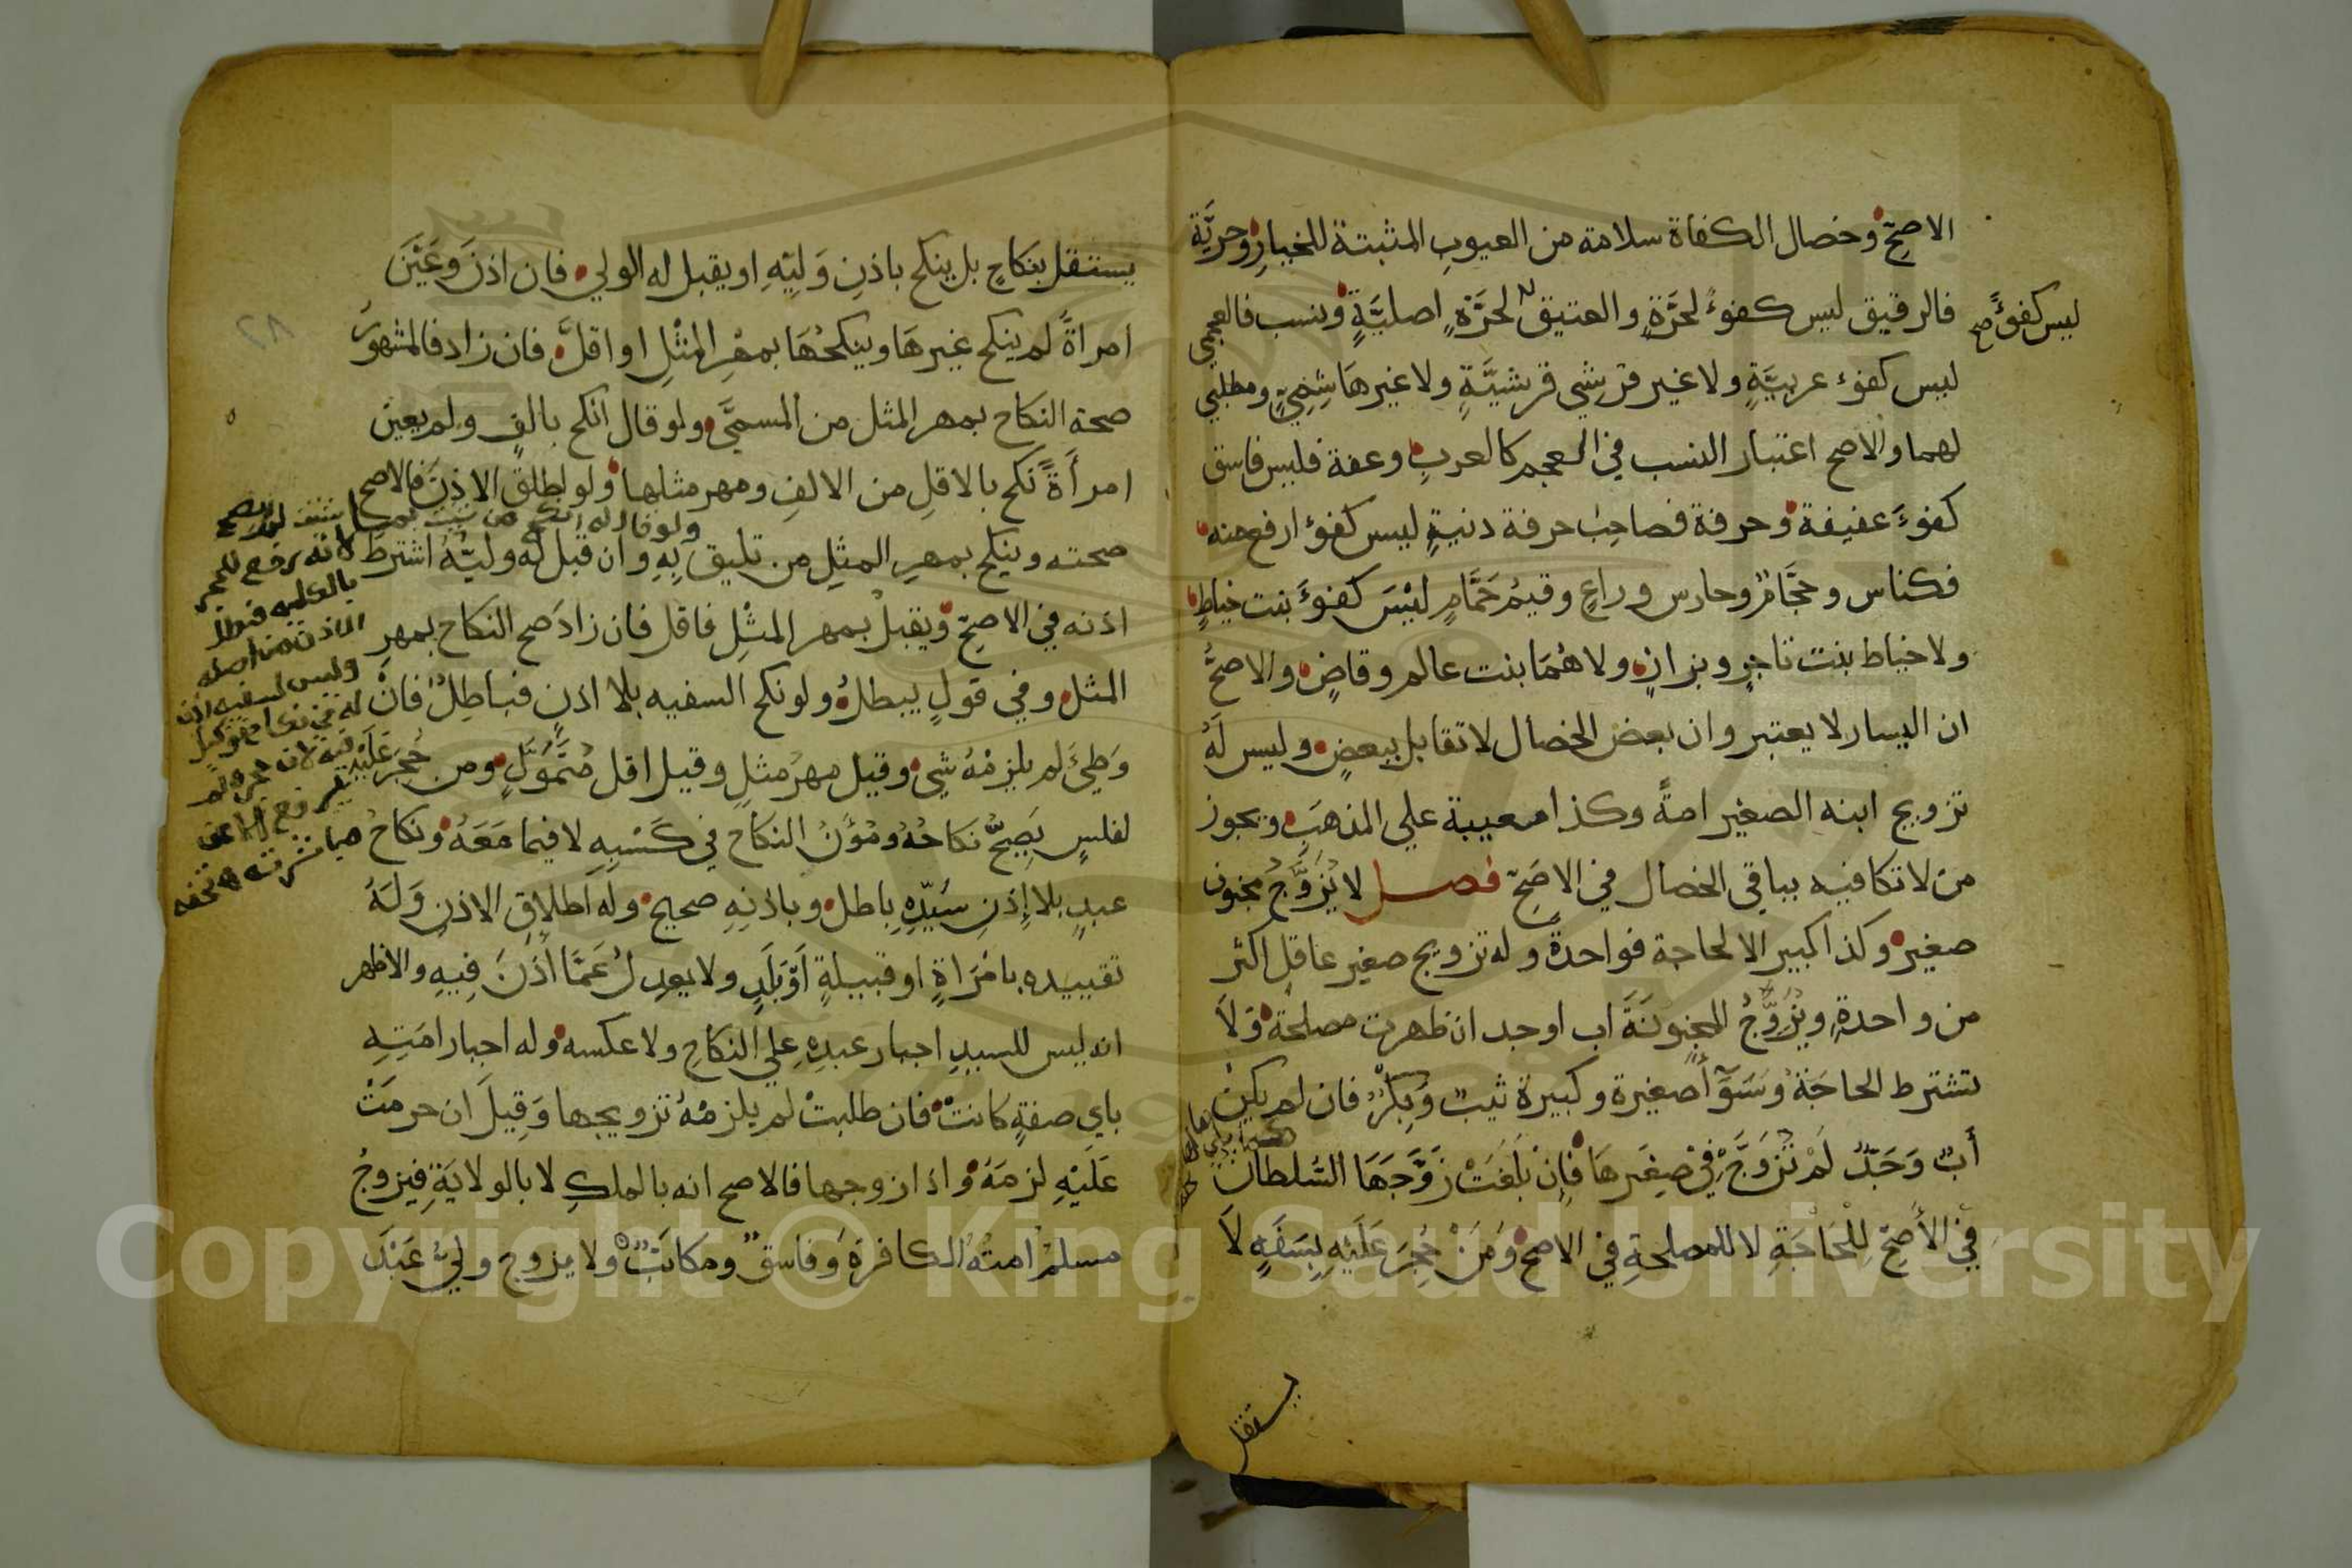 الاصحّ وخصال الكفاة سلامة من العيوبِ المثبتة للخيارِ وحريَّة
فالرقيق ليس كفوءً لحرَّةٍ والعتيق لحرَّةٍ اصليَّةٍ ونسب فالعجمي
ليس كفوءً صح
ليس كفوء عربيَّةٍ ولا غير قرشِي قرشيَّةٍ ولا غير هاشِمِيٍّ ومطلبي
لهما والاصح اعتبار النسب في العجم كالعربِ وعفة فليس فاسق
كفوءَ عفيفة وحرفة فصاحِبُ حرفة دنيةٍ ليس كفوء ارفع منه
فكناس وحجَّامٌ وحارس وراعٍ وقيمُ حَمَّامٍ لَيْسَ كفوءَ بنت خياطٍ
ولا خياط بنت تاجرٍ وبزازٍ ولا هُمَا بنت عالم وقاضٍ والاصحُّ
ان اليسار لا يعتبر وان بعض الخصال لا تقابل ببعضٍ وليس لَهُ
تزويج ابنه الصغير امةً وكذا معيبة علي المذهَبِ ويجوز
من لا تكافيه بباقي الخصال في الاصَحِّ فصل لا يُزَوَّجُ مجنون
صغير وكذا كبير الا لحاجة فواحدةً وله تزويج صغير عاقل اكثر
من واحدةٍ ويُزَوِّجُ المجنونَةَ اب او جد ان ظهرت مصلحة وَلاَ
تشترط الحاجَةُ وَسَوَآءٌ صغيرة وكبيرة ثيبٌ وَبِكْرٌ فان لم يكن
أَبٌ وَجَدٌّ لَمْ تُزَوَّجْ فِيْ صِغَرِهَا فَإِنْ بَلَغَتْ زَوَّجَهَا السُّلطان
فِي الأَصَحِّ لِلْحَاجَةِ لا للمصلحةِ في الاصح وَمَنْ حُجِرَ عَلَيْهِ بِسَفَهٍ لاَ
يستقل
يستقل بنكاحٍ بل ينكح باذنِ وَلِيّهِ او يقبل له الولي فان اذنَ وَعَيَّنَ
امراةً لم ينكح غيرهَا وينكحُهَا بمهْرِ المِثْلِ او اقلَّ فان زاد فالمشهورُ
صحة النكاح بمهر المثل من المسمَّي ولو قال انكح بالفٍ ولم يعين
امرأَةً نكح بالاقلِ من الالفِ ومهر مثلها ولو اطلق الاذنَ فالاصح
صحته وينكح بمهرِ المثلِ من تليق بِهِ وان قبل له وليُّهُ اشترط
اذنه في الاصحّ ويقبلُ بمهر المثْلِ فاقل فان زادَ صح النكاح بمهرِ
المثل وفي قولٍ يبطلُ ولو نكح السفيه بلا اذنٍ فباطِلٌ فانْ
وَطِئَ لم يلزمْهُ شي وقيل مهرُ مثلٍ وقيل اقل مُتَمَوَّلٍ ومن حُجِرَ عَلَيْهِ
لفلسٍ يَصِحُّ نكاحُهُ ومُؤَنُ النكاح في كَسْبِهِ لا فيما مَعَهُ ونكاحُ
عبدٍ بلا إذنِ سَيّدِهِ باطل وباذنِهِ صحيح وله اطلاق الاذنِ وَلَهُ
تقييده بامْرَاةٍ او قبيلةٍ اَوْ بَلَدٍ ولا يعدِلُ عَمَّا أذنَ فِيهِ والاظهر
انه ليس للسيدِ اجبار عبدِهِ علي النكاح ولا عكسه وله اجبار امَتِهِ
باي صفةٍ كانتْ فان طلبتْ لم يلزمْهُ تزويجها وَقِيلَ ان حرمَتْ
عَلَيْهِ لزمَهُ واذا زوجها فالاصح انه بالملكِ لا بالولايَةِ فيزوجُ
مسلمٌ امتهُ الكافرةَ وَفاسقٌ ومكاتَبٌ ولا يزوج وليُّ عَبْدَ
ولو قال له انكح من شئت بما شئت لم يصح
لانه رفع للحجر
بالكليه فبطل
الاذن من اصله
وليس لسفيه اذن
له في نكاح توكيل
فيه لان حجره لم
يرتفع الا عن
مباشرته ه تحفه